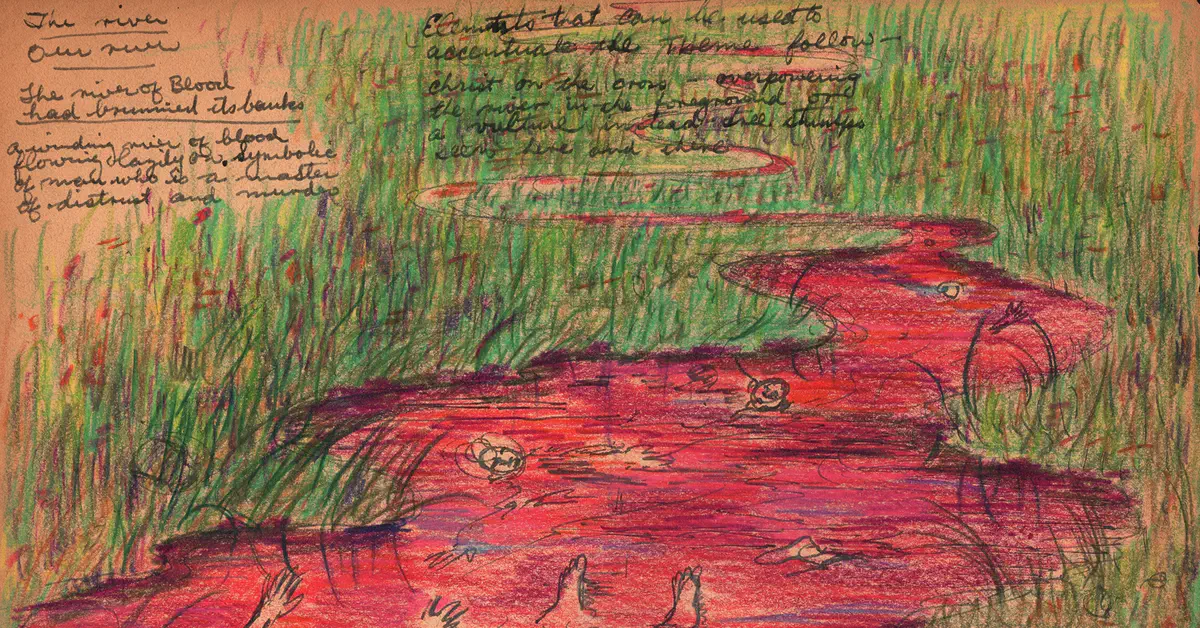 The river
Our river
The river of Blood
had brimmed its banks
a winding river of blood
flowing lazily as symbolic
of man who is a master
of distrust and murder
Elements that can be used to
accentuate the Theme follow—
Christ on the cross – overpowering
the river in the foreground or
a vulture in dead tree stumps
seen here and there